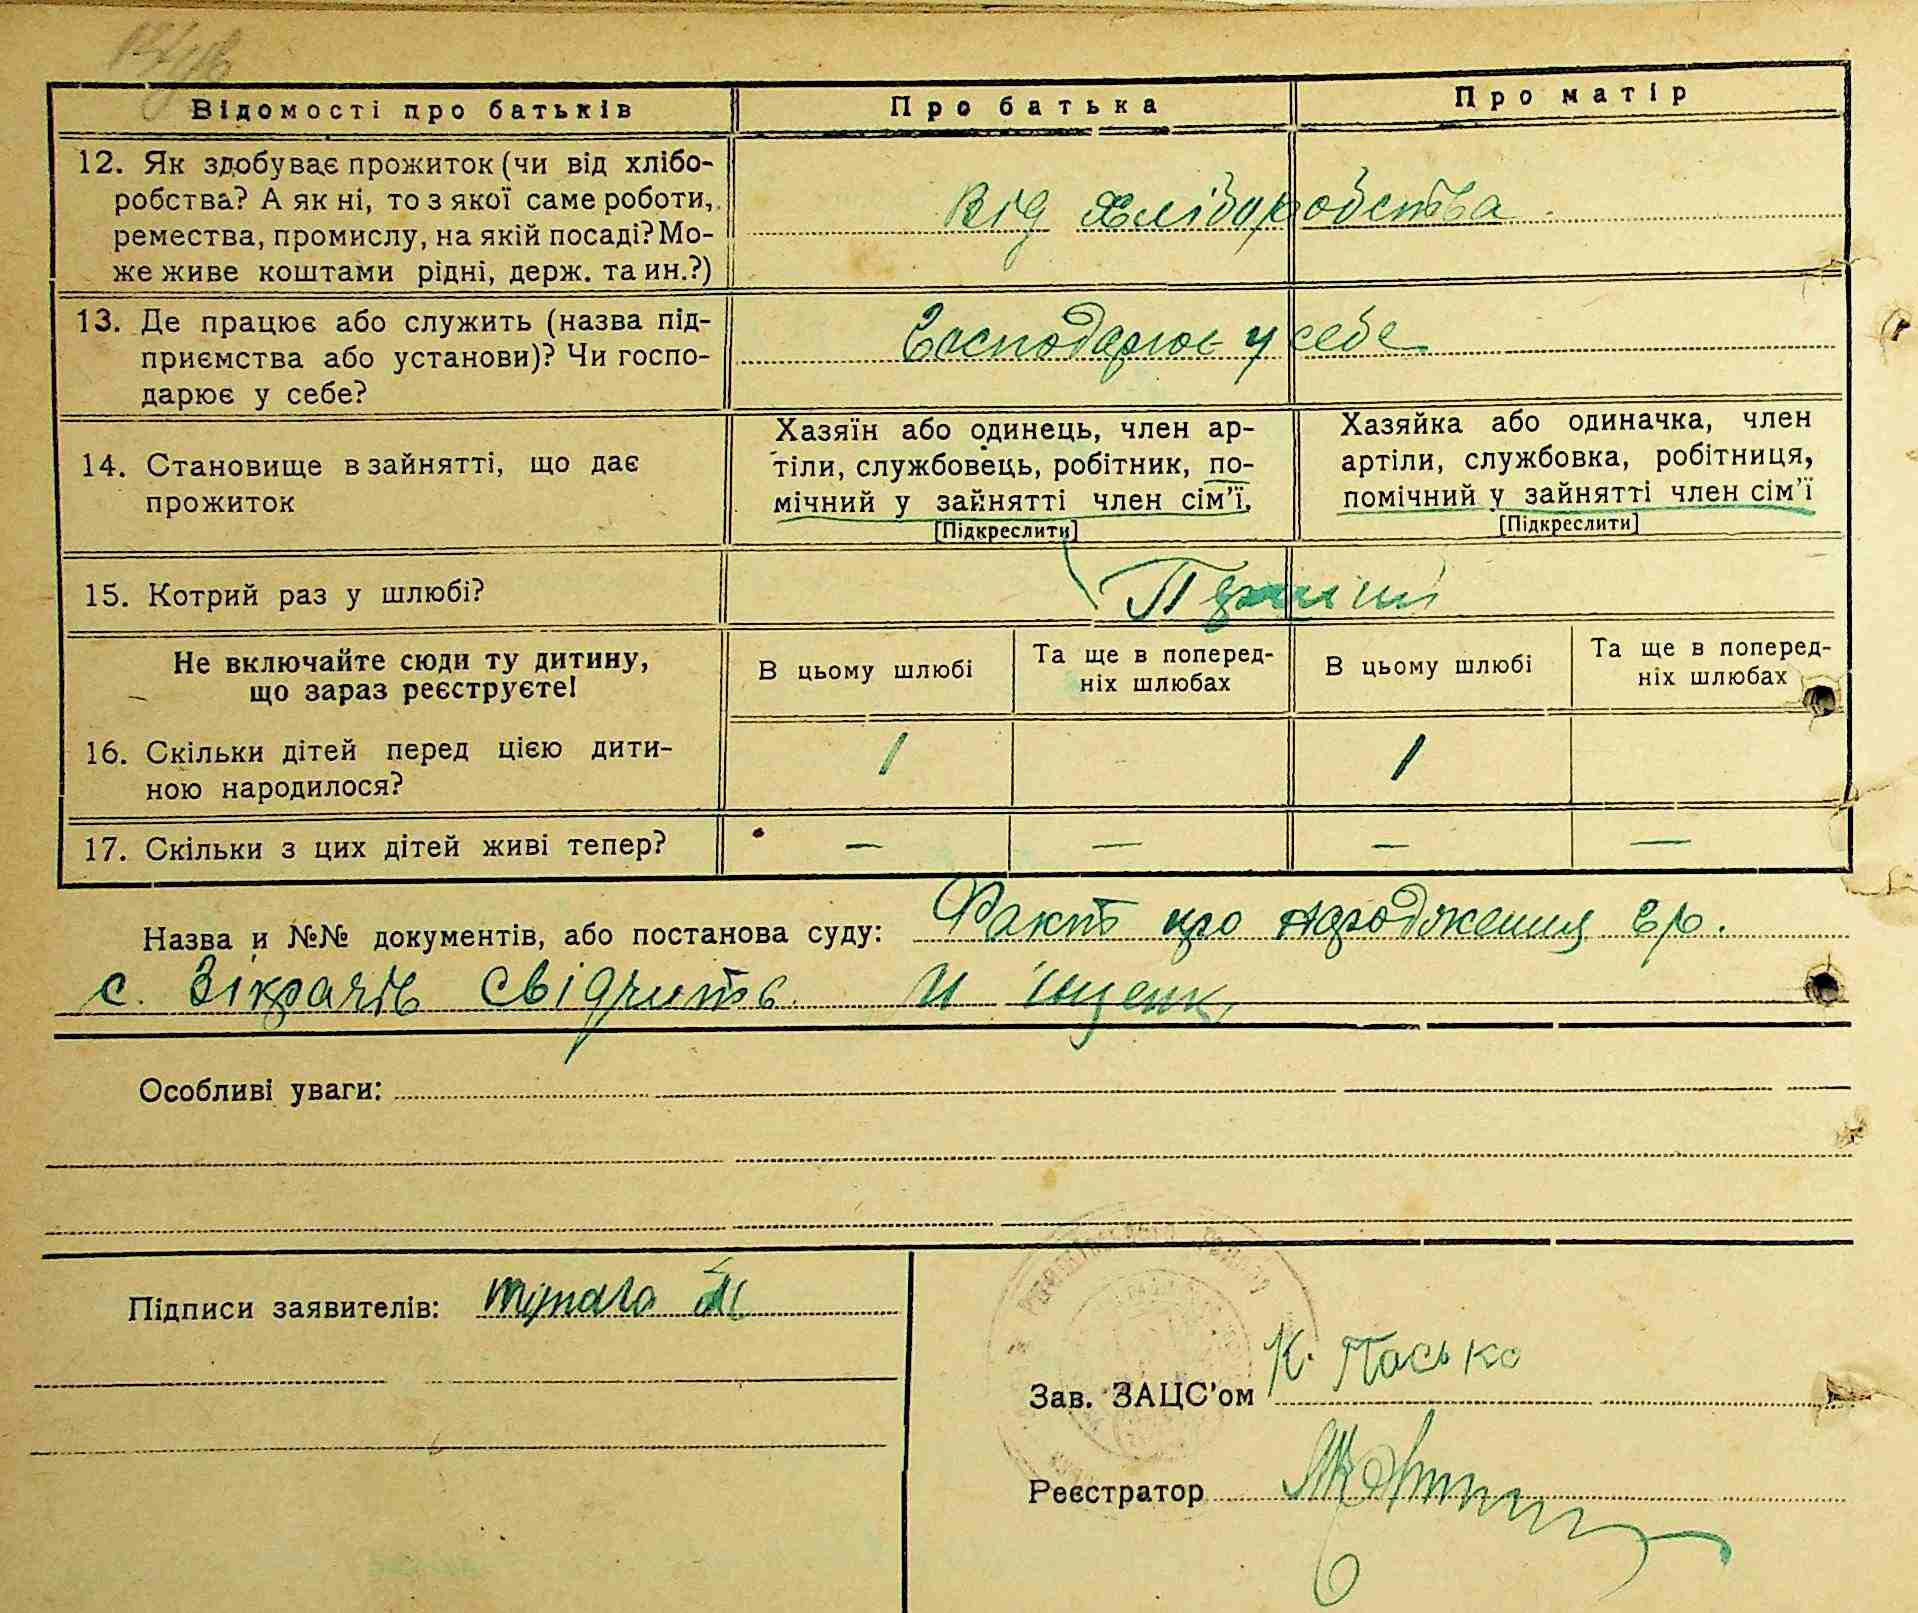 Відомості про батьків
Про батька
Про матір
12. Як здобуває прожиток (чи від хлібо-
робства? А як ні, то з якої саме роботи,
ремества, промислу, на якій посаді? Мо-
же живе коштами рідні, держ. та ин.?)
Від хліборобства
13. Де працює або служить (назва під-
приємства або установи)? Чи госпо-
дарює у себе?
Господарює у себе
14. Становище в зайнятті, що дає
прожиток
Хазяїн або одинець, член ар-
тіли, службовець, робітник, по-
мічний у зайнятті член сім'ї.
[Підкреслити]
Хазяйка або одиначка, член
артіли, службовка, робітниця,
помічний у зайнятті член сім'ї
[Підкреслити]
15. Котрий раз у шлюбі?
Не включайте сюди ту дитину,
що зараз реєструєте!
В цьому шлюбі
Та ще в поперед-
ніх шлюбах
В цьому шлюбі
Та ще в поперед-
ніх шлюбах
16. Скільки дітей перед цією дити-
ною народилося?
1
1
17. Скільки з цих дітей живі тепер?
— — — —
Назва и №№ документів, або постанова суду: Факт про народження гр.
с. Зікрачів свідчить
Особливі уваги:
Підписи заявителів:
Зав. ЗАЦС'ом К. Пасько
Реєстратор